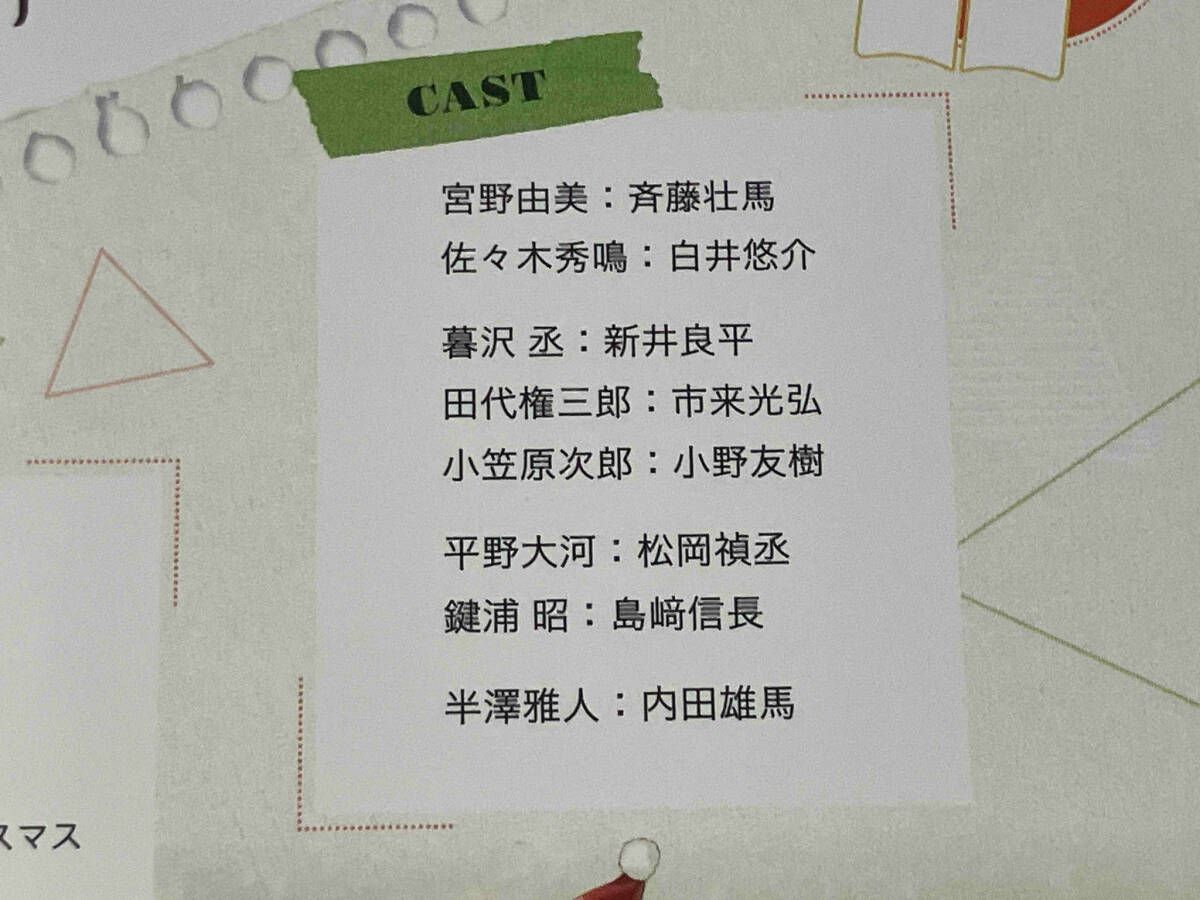 CAST
宮野由美：斉藤壮馬
佐々木秀鳴：白井悠介
暮沢 丞：新井良平
田代権三郎：市来光弘
小笠原次郎：小野友樹
平野大河：松岡禎丞
鍵浦 昭：島﨑信長
半澤雅人：内田雄馬
スマス